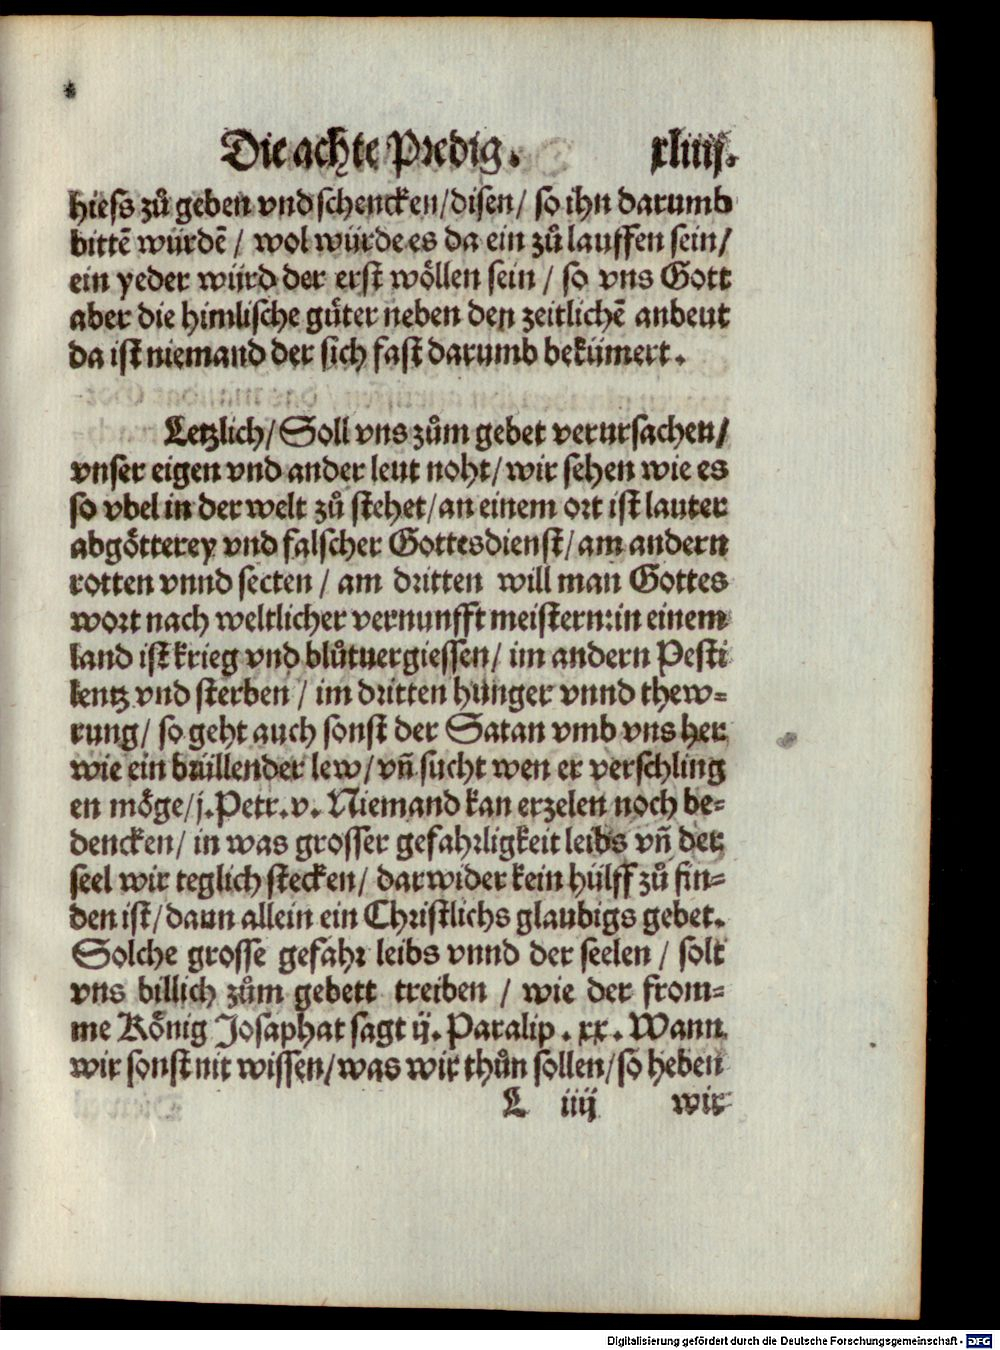 Die achte Predig. xliiij.
hiess zů geben vnd schencken/disen/ so ihn darumb
bittẽ würdẽ / wol würde es da ein zů lauffen sein/
ein yeder würd der erst wöllen sein / so vns Gott
aber die himlische güter neben den zeitlichẽ anbeut
da ist niemand der sich fast darumb bekümert.
Letzlich/ Soll vns zům gebet verursachen/
vnser eigen vnd ander leut noht/ wir sehen wie es
so vbel in der welt zů stehet/ an einem ort ist lauter
abgötterey vnd falscher Gottesdienst/ am andern
rotten vnnd secten / am dritten will man Gottes
wort nach weltlicher vernunfft meistern: in einem
land ist krieg vnd blůtuergiessen/ im andern Pesti
lentz vnd sterben / im dritten hunger vnnd thew-
rung/ so geht auch sonst der Satan vmb vns her
wie ein brüllender lew/ vñ sucht wen er verschling
en möge/ j. Petr. v. Niemand kan erzelen noch be-
dencken/ in was grosser gefahrligkeit leibs vñ der
seel wir teglich stecken/ darwider kein hülff zů fin-
den ist/ dann allein ein Christlichs glaubigs gebet.
Solche grosse gefahr leibs vnnd der seelen / solt
vns billich zům gebett treiben / wie der from-
me König Josaphat sagt ij. Paralip. xx. Wann
wir sonst nit wissen/ was wir thůn sollen/ so heben
L iiij wir
Digitalisierung gefördert durch die Deutsche Forschungsgemeinschaft - DFG